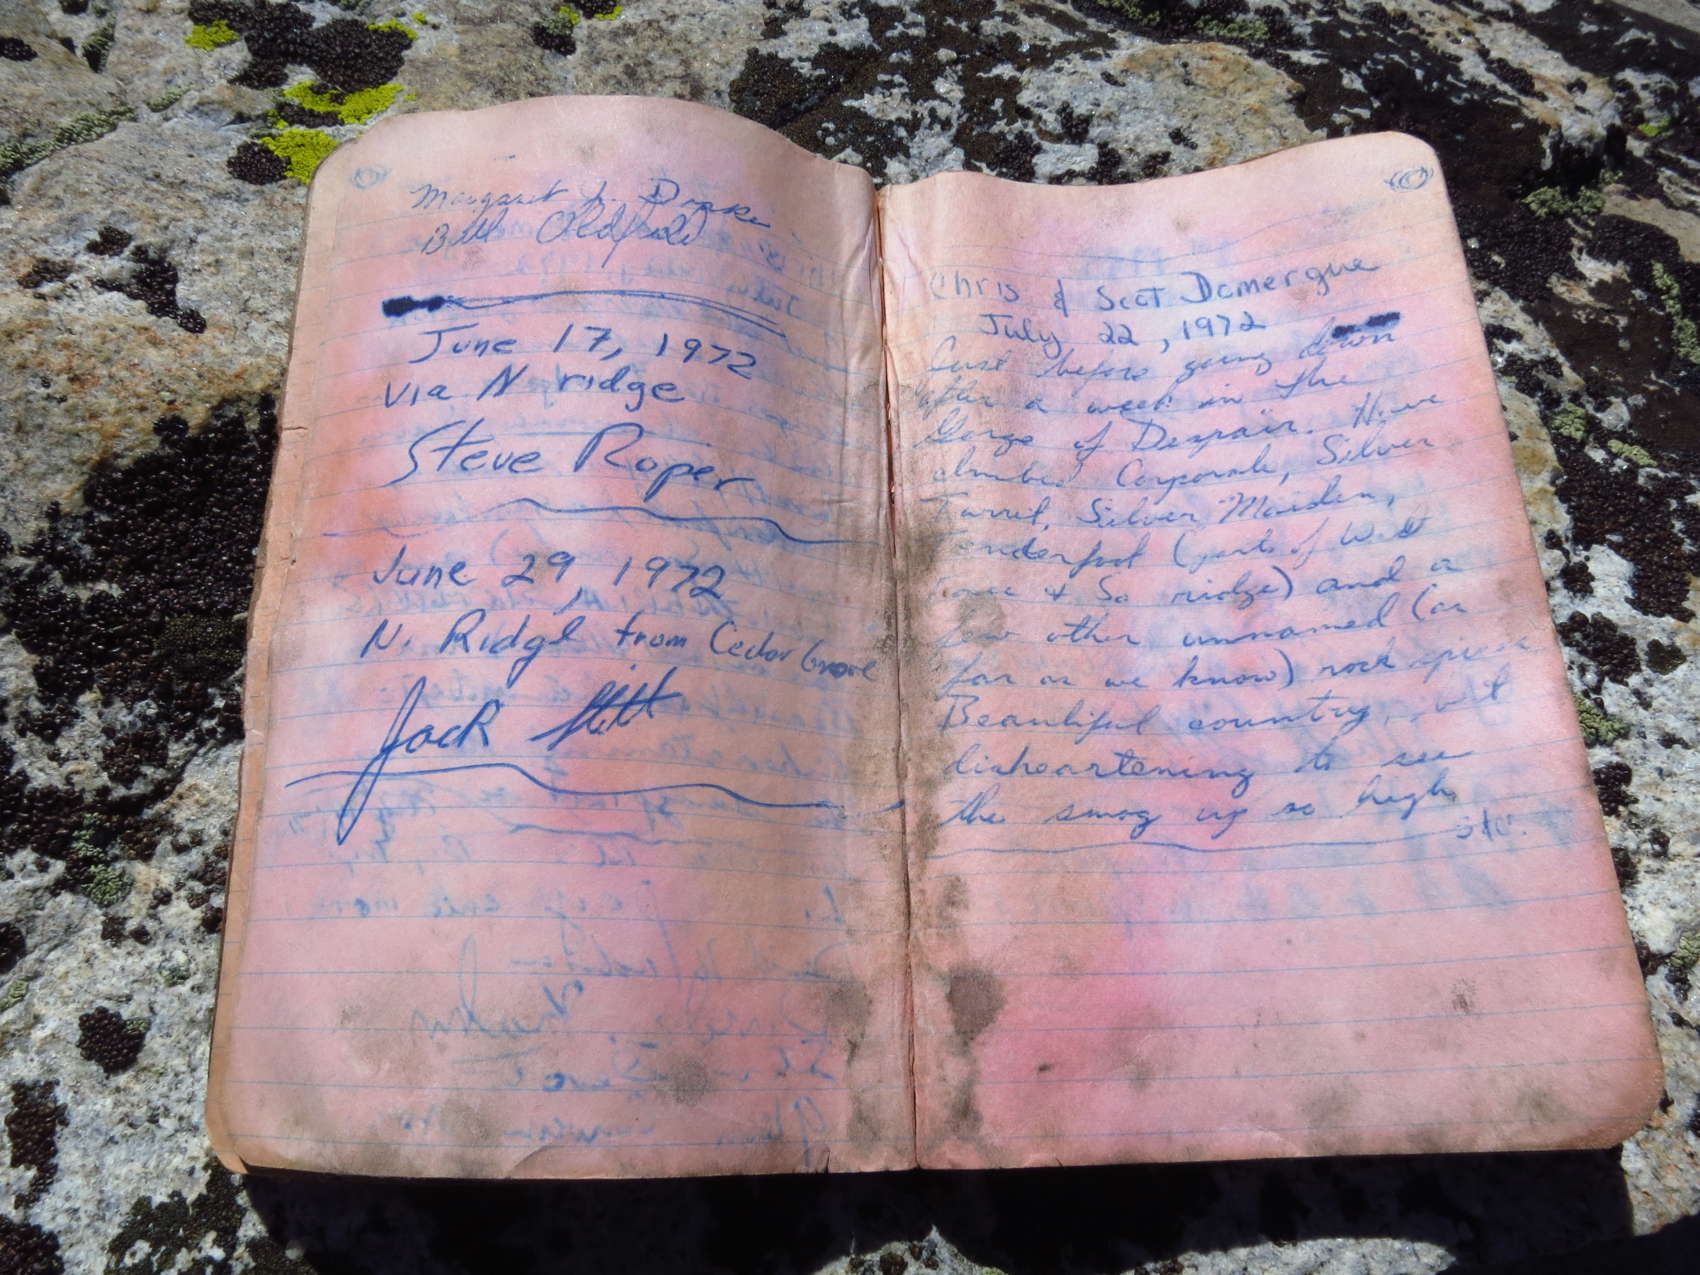 Margaret L. Drake
Bill Oldfield
June 17, 1972
via N ridge
Steve Roper
June 29, 1972
N. Ridge from Cedar Grove
Jack
Chris & Scot Domergue
July 22, 1972
Just before going down
after a week in the
Gorge of Despair. Have
climbed Corporal, Silver
Turret, Silver Maiden,
Tenderfoot (part of
& So ridge) and a
few other unnamed (as
far as we know) rock spires
Beautiful country, but
disheartening to see
the smog up so high